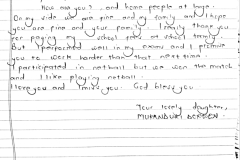 How are you? and home people at large.
On my side we are fine and my family and I hope
you are fine and your family. I really thank you
for paying my school fees at school
But I performed well in my exams and I promise
you to work harder than that next time.
I participated in netball but we won the match
and I like playing netball.
I love you and I miss you. God bless you
Your lovely daughter,